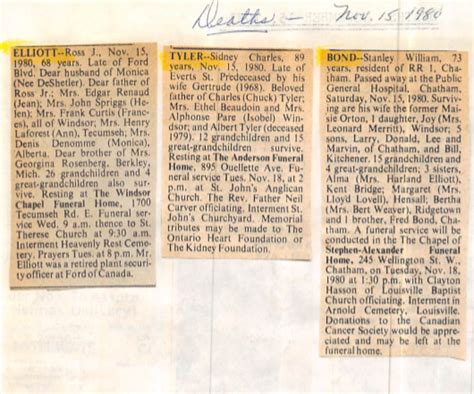 Deaths - Nov. 15, 1980
ELLIOTT--Ross J., Nov. 15,
1980, 68 years. Late of Ford
Blvd. Dear husband of Monica
(Nee DeShetler). Dear father of
Ross J.; Mrs. Edgar Renaud
(Jean); Mrs. John Spriggs (He-
len); Mrs. Frank Curtis (Fran-
ces), all of Windsor; Mrs. Henry
Laforest (Ann), Tecumseh; Mrs.
Denis Denomme (Monica),
Alberta. Dear brother of Mrs.
Georgina Rosenberg, Berkley,
Mich. 26 grandchildren and 4
great-grandchildren also sur-
vive. Resting at The Windsor
Chapel Funeral Home, 1700
Tecumseh Rd. E. Funeral ser-
vice Wed. 9 a.m. thence to St.
Therese Church at 9:30 a.m.
Interment Heavenly Rest Ceme-
tery. Prayers Tues. at 8 p.m. Mr.
Elliott was a retired plant secur-
ity officer at Ford of Canada.
TYLER--Sidney Charles, 89
years, Nov. 15, 1980. Late of
Everts St. Predeceased by his
wife Gertrude (1968). Beloved
father of Charles (Chuck) Tyler;
Mrs. Ethel Beaudoin and Mrs.
Alphonse Pare (Isobel) Win-
dsor; and Albert Tyler (deceased
1979). 12 grandchildren and 15
great-grandchildren survive.
Resting at The Anderson Funeral
Home, 895 Ouellette Ave. Fu-
neral service Tues. Nov. 18, at 2
p.m. at St. John's Anglican
Church. The Rev. Father Neil
Carver officiating. Interment St.
John's Churchyard. Memorial
tributes may be made to The
Ontario Heart Foundation or
The Kidney Foundation.
BOND--Stanley William, 73
years, resident of RR 1, Cha-
tham. Passed away at the Public
General Hospital, Chatham,
Saturday, Nov. 15, 1980. Surviv-
ing are his wife the former Mai-
sie Orton, 1 daughter, Joy (Mrs.
Leonard Merritt), Windsor; 5
sons, Larry, Donald, Lee and
Marvin, of Chatham, and Bill,
Kitchener. 15 grandchildren and
4 great-grandchildren; 3 sisters,
Alma (Mrs. Harland Elliott),
Kent Bridge; Margaret (Mrs.
Lloyd Lovell), Hensall; Bertha
(Mrs. Bert Weaver), Ridgetown
and 1 brother, Fred Bond, Cha-
tham. A funeral service will be
conducted in the The Chapel of
Stephen-Alexander Funeral
Home, 245 Wellington St. W.,
Chatham, on Tuesday, Nov. 18,
1980 at 1:30 p.m. with Clayton
Hasson of Louisville Baptist
Church officiating. Interment in
Arnold Cemetery, Louisville.
Donations to the Canadian
Cancer Society would be appre-
ciated and may be left at the
funeral home.